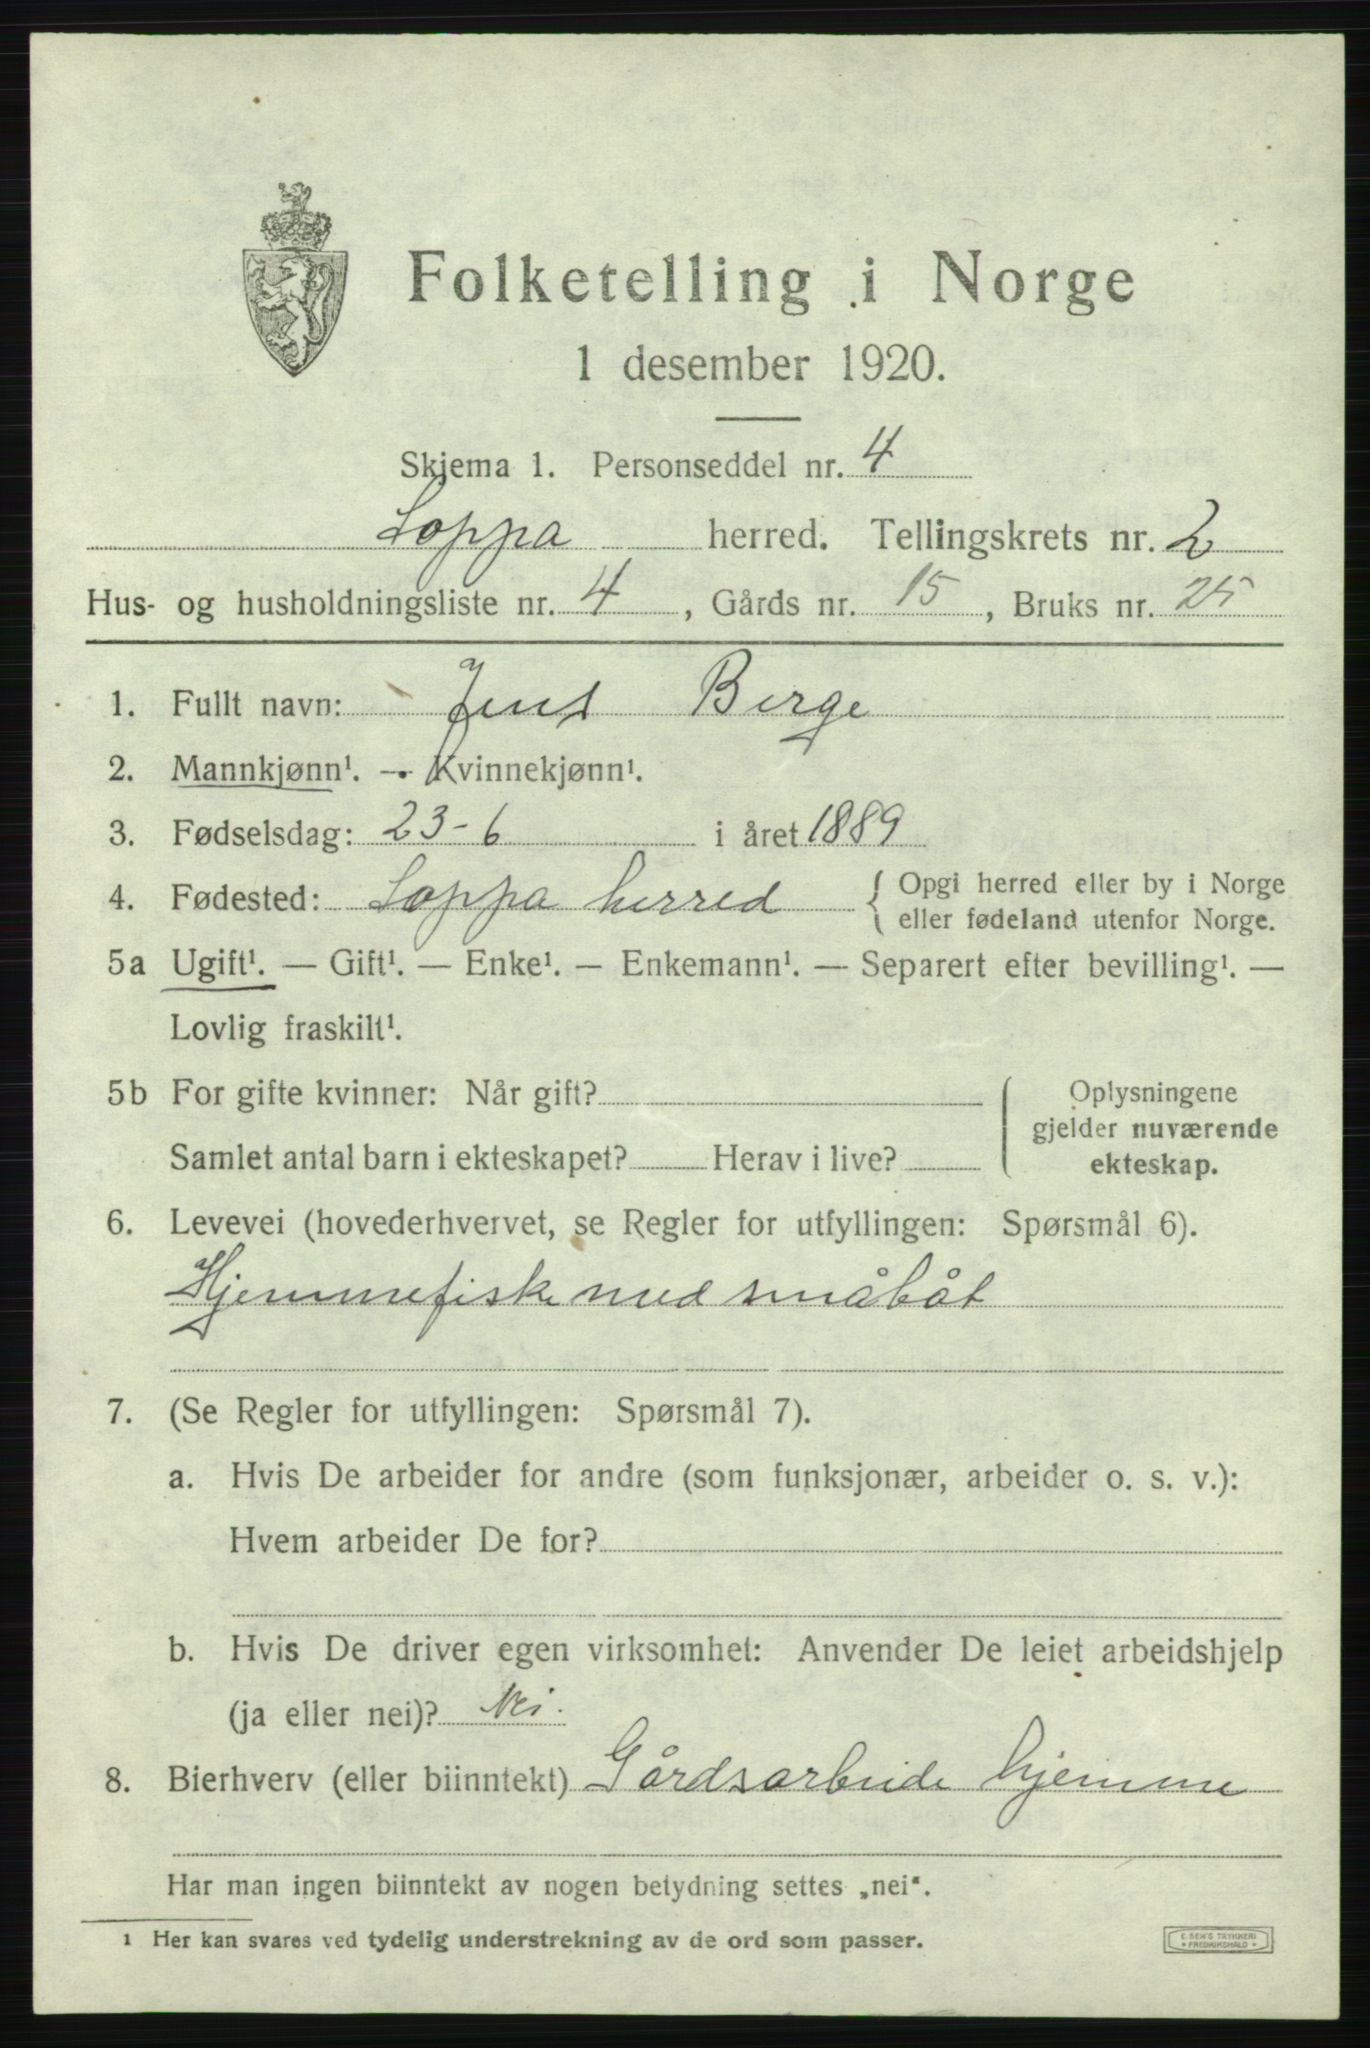 Folketelling i Norge
1 desember 1920.
Skjema 1. Personseddel nr. 4
Loppa herred. Tellingskrets nr. 2
Hus- og husholdningsliste nr. 4, Gårds nr. 15, Bruks nr. 25
1. Fullt navn: Jens Berge
2. Mannkjønn¹. — Kvinnekjønn¹.
3. Fødselsdag: 23-6 i året 1889
4. Fødested: Loppa herred { Opgi herred eller by i Norge
eller fødeland utenfor Norge.
5a Ugift¹. — Gift¹. — Enke¹. — Enkemann¹. — Separert efter bevilling¹. —
Lovlig fraskilt¹.
5b For gifte kvinner: Når gift?
Samlet antal barn i ekteskapet? Herav i live?
Oplysningene
gjelder nuværende
ekteskap.
6. Levevei (hovederhvervet, se Regler for utfyllingen: Spørsmål 6).
Hjemmefiske med småbåt
7. (Se Regler for utfyllingen: Spørsmål 7).
a. Hvis De arbeider for andre (som funksjonær, arbeider o. s. v.):
Hvem arbeider De for?
b. Hvis De driver egen virksomhet: Anvender De leiet arbeidshjelp
(ja eller nei)? Nei.
8. Bierhverv (eller biinntekt) Gårdsarbeide hjemme
Har man ingen biinntekt av nogen betydning settes „nei".
1 Her kan svares ved tydelig understrekning av de ord som passer.
E. SEM'S TRYKKERI
* FREDRIKSHALD *